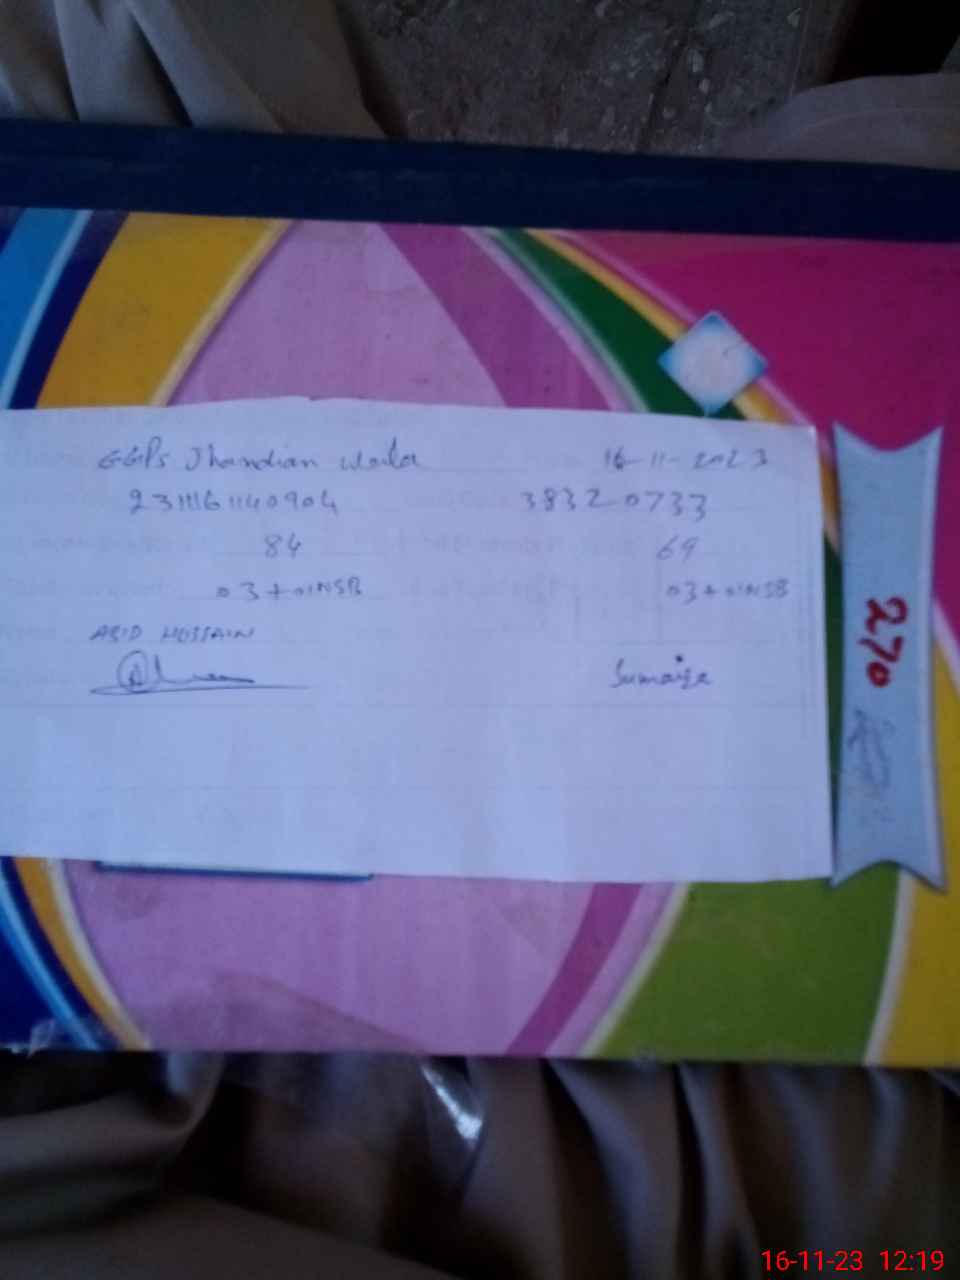 GGPS Jhandian Wala 16-11-2023
231116 1140904 38320733
84 69
03+01NSB 03+01NSB
ABID HUSSAIN
Sumaiya
270
16-11-23 12:19